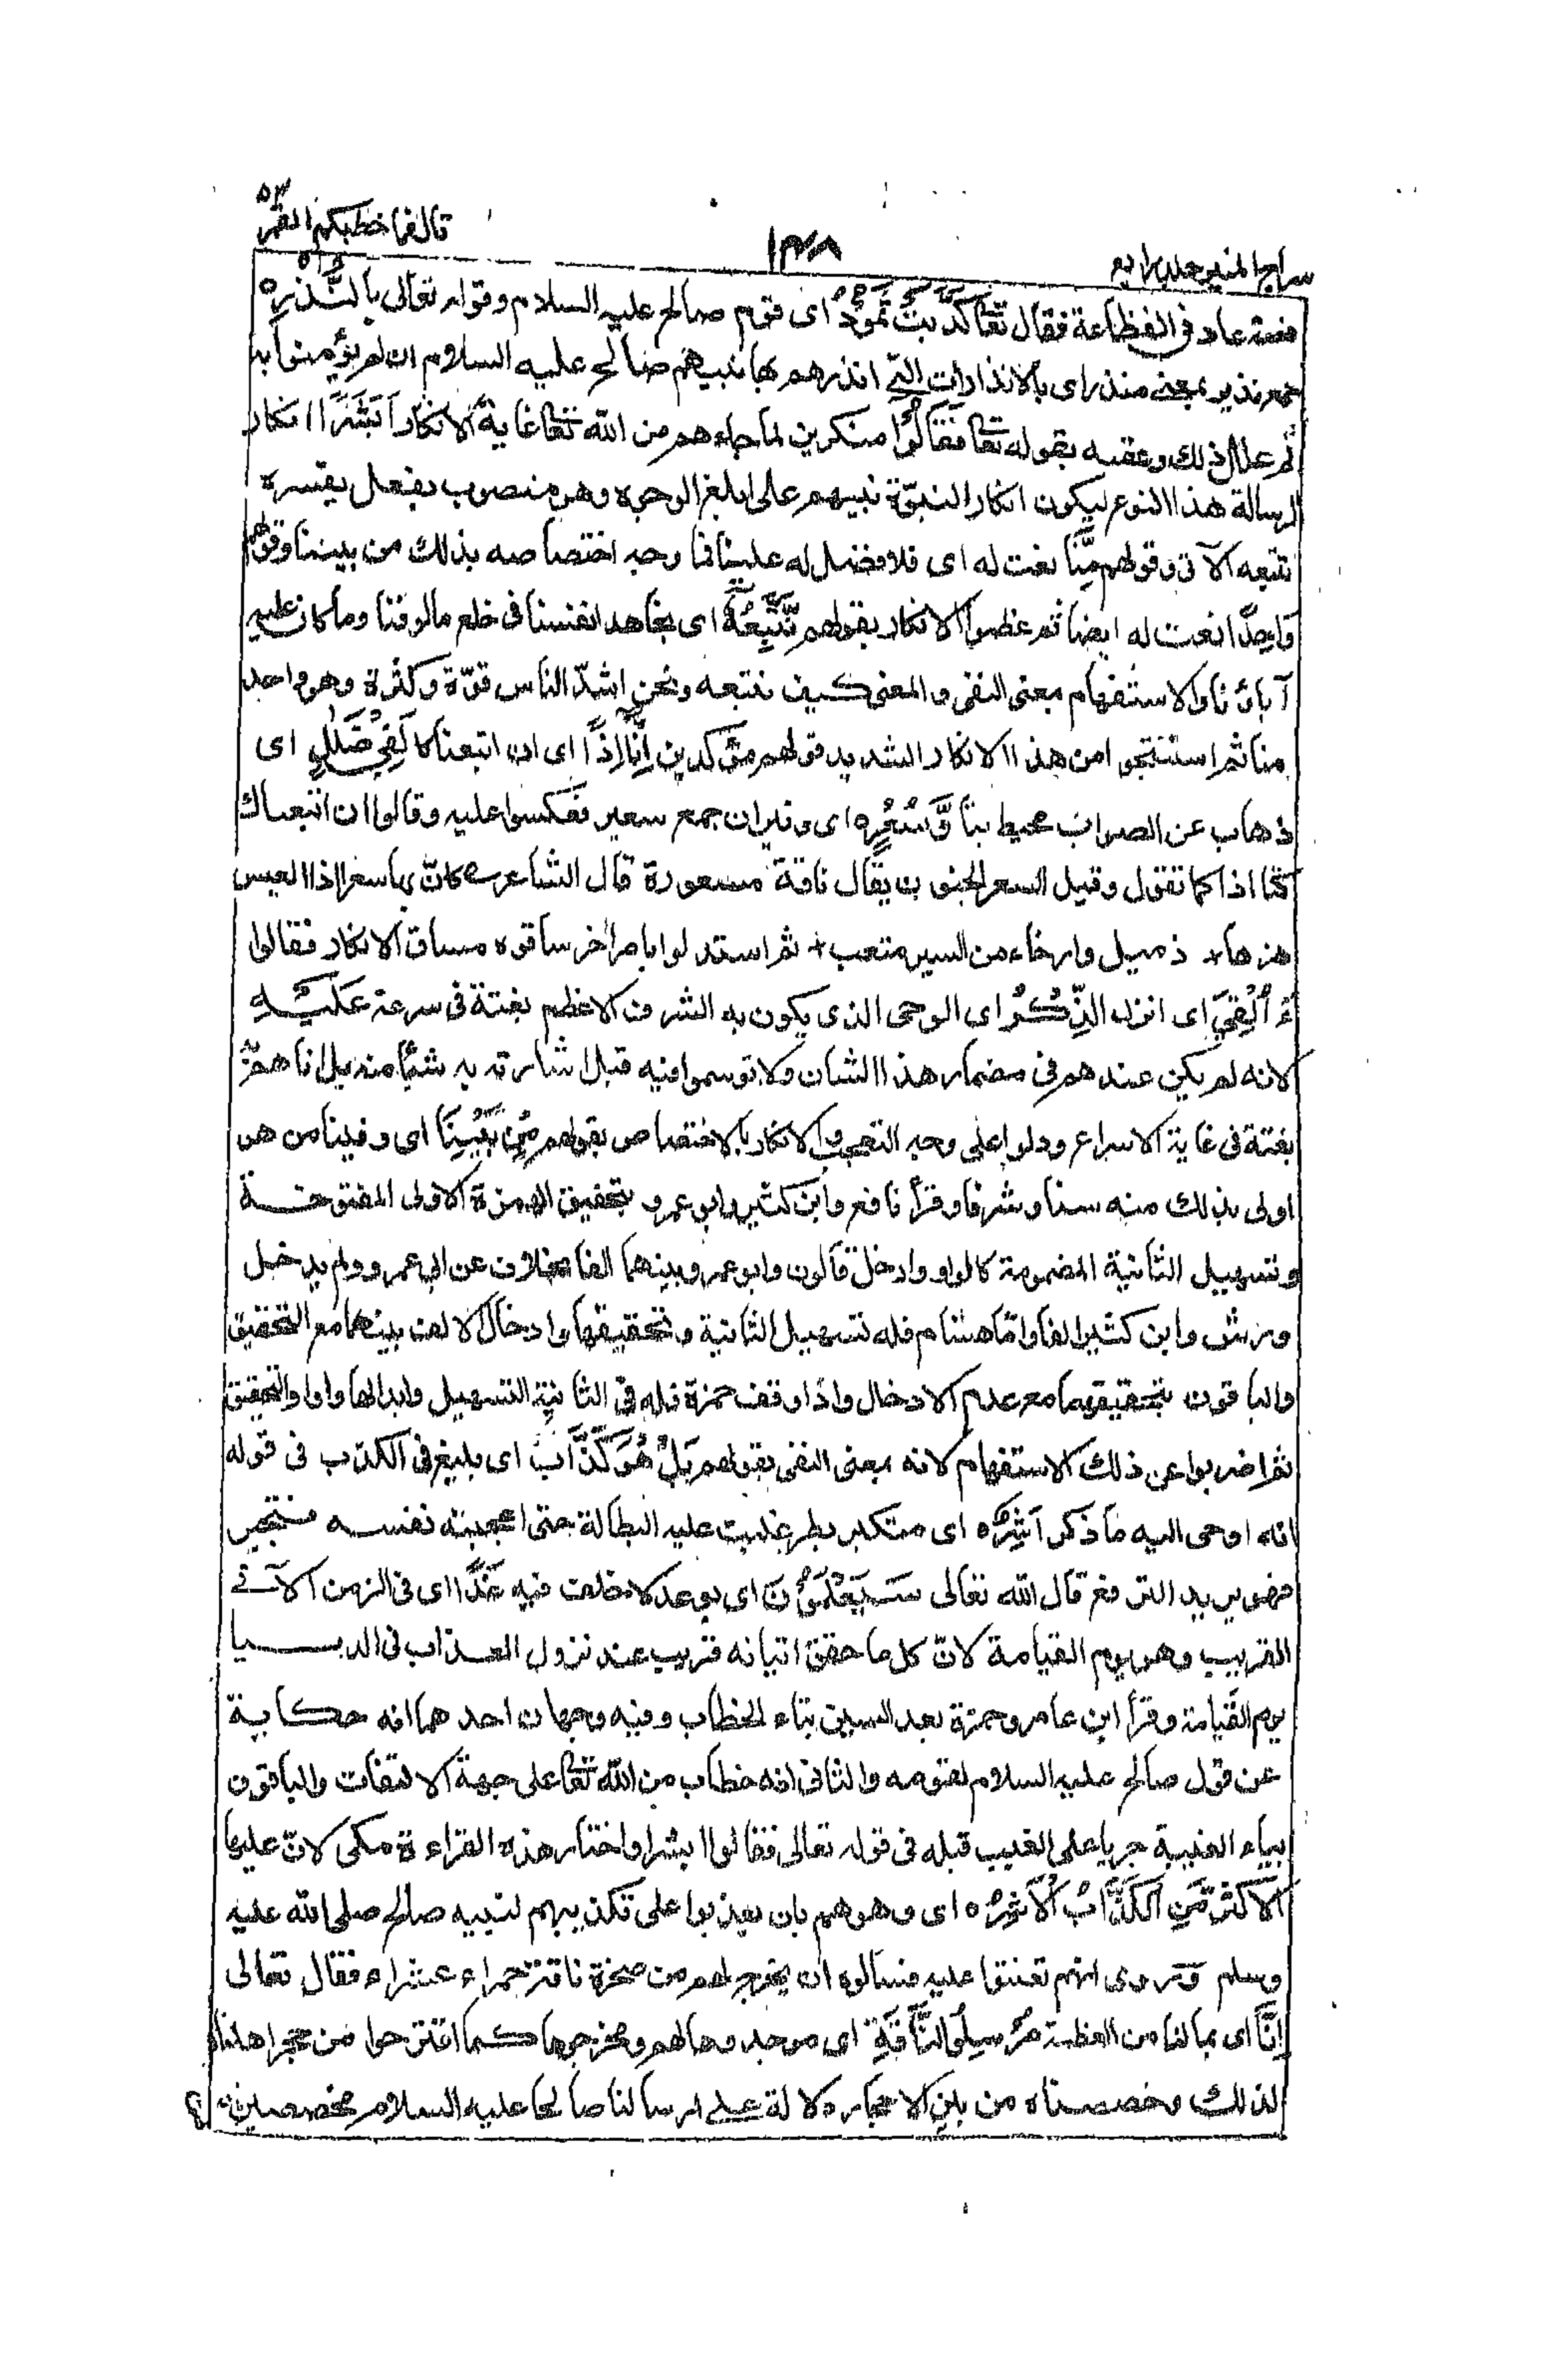 سراج المنير جلد رابع
١٣٨
قال فما خطبكم القمر ٥٤
قصة عاد فى الفظاعة فقال تعالى كَذَّبَتْ ثَمُوْدُ اى قوم صالح عليه السلام وقوله تعالى بِالنُّذُرِ٥
جمع نذير بمعنى منذر اى بالانذارات التى انذرهم بها نبيهم صالح عليه السلام ان لم يؤمنوا به
ثم علل ذلك وعقبه بقوله تعا فَقَالُوْا منكرين لما جاءهم من الله تعا غاية الانكار اَبَشَرًا انكار
لرسالة هذا النوع ليكون انكار النبوّة نبيهم على ابلغ الوجوه وهو منصوب بفعل يفسره
نتبعه الآتى وقولهم مِّنَّا نعت له اى فلا فضل له علينا فما وجه اختصاصه بذلك من بيننا وقولهم
وَاحِدًا نعت له ايضا ثم عظموا الانكار بقولهم نَّتَّبِعُهٗ اى نجاهد انفسنا فى خلع مالوفنا وما كان عليه
آباؤنا والاستفهام بمعنى النفى والمعنى كيف نتبعه ونحن اشدّ الناس قوّة وكثرة وهو واحد
منا ثم استنتجوا من هذا الانكار الشديد قولهم مؤكدين اِنَّا اِذًا اى ان اتبعناه لَفِىْ ضَلٰلٍ اى
ذهاب عن الصواب محيط بنا وَّسُعُرٍ٥ اى ونيران جمع سعير فعكسوا عليه وقالوا ان اتبعناك
كنا اذا كما تقول وقيل السعر الجنون يقال ناقة مسعورة قال الشاعر كانّ بها سعرا اذا العيس
هزها ٭ ذميل وارخاء من السير متعب ٭ ثم استدلوا بامر اخر ساقوه مساق الانكار فقالوا
ءَاُلْقِيَ اى انزل الذِّكْرُ اى الوحى الذى يكون به الشرف الاعظم بغتة فى سرعة عَلَيْهِ
لانه لم يكن عندهم فى مضمار هذا الشان ولا توسموا فيه قبل اشارته به شيًا منه بل اتاهم
بغتة فى غاية الاسراع ودلوا على وجه التعجب والانكار بالاختصاص بقولهم مِنْۢ بَيْنِنَا اى وفينا من هو
اولى بذلك منه سنا وشرفا وقرأ نافع وابن كثير وابو عمرو بتحقيق الهمزة الاولى المفتوحة
وتسهيل الثانية المضمومة كالواو وادخل قالون وابو عمرو بينهما الفا بخلاف عن ابى عمرو ولم يدخل
ورش وابن كثير الفا وامّا هشام فله تسهيل الثانية وتحقيقها وادخال الالف بينهما مع التحقيق
والباقون بتحقيقهما مع عدم الادخال واذا وقف حمزة فله فى الثانية التسهيل وابدالها واوا والتحقيق
ثم اضربوا عن ذلك الاستفهام لانه بمعنى النفى بقولهم بَلْ هُوَ كَذَّابٌ اى بليغ فى الكذب فى قوله
انه اوحى اليه ما ذكر اَشِرٌ٥ اى متكبر بطر غلبت عليه البطالة حتى اعجبته نفسه
فهو يريد الترفع قال الله تعالى سَيَعْلَمُوْنَ اى بوعد لا خلف فيه غَدًا اى فى الزمن الآتى
القريب وهو يوم القيامة لانّ كل ما حقق اتيانه قريب عند نزول العذاب فى الدنيا
يوم القيامة وقرأ ابن عامر وحمزة بعد السين بتاء الخطاب وفيه وجهان احدهما انه حكاية
عن قول صالح عليه السلام لقومه والثانى انه خطاب من الله تعا على جهة الالتفات والباقون
بياء الغيبة جريا على الغيب قبله فى قوله تعالى فقالوا ابشرا واختار هذه القراءة مكى لانّ عليها
الاكثر مَّنِ الْكَذَّابُ الْاَشِرُ٥ اى وهو هم بان يعذبوا على تكذيبهم لنبيه صالح صلى الله عليه
وسلم وروى انهم تعنتوا عليه فسالوه ان يخرج لهم من صخرة ناقة حمراء عشراء فقال تعالى
اِنَّا اى بما لنا من العظمة مُرْسِلُوا النَّاقَةِ اى موجدوها لهم ومخرجوها كما اقترحوا من حجر اهلناه
لذلك وخصصناه من بين الاحجار دلالة على ارسالنا صالحا عليه السلام مخصصين